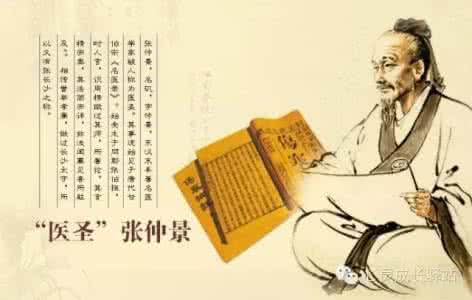 张仲景,名玑,字仲景,东汉末年著名医
学家被人称为医圣。其事迹始见于唐代甘
伯宗《名医录》。始受术于同郡张伯祖,
时人言,识用精微过其师,所著论,其言
精而奥,其法简而详,非浅闻寡见者所能
及。 相传曾举孝廉,做过长沙太守,所
以又有张长沙之称。
“医圣”张仲景
心灵成长驿站